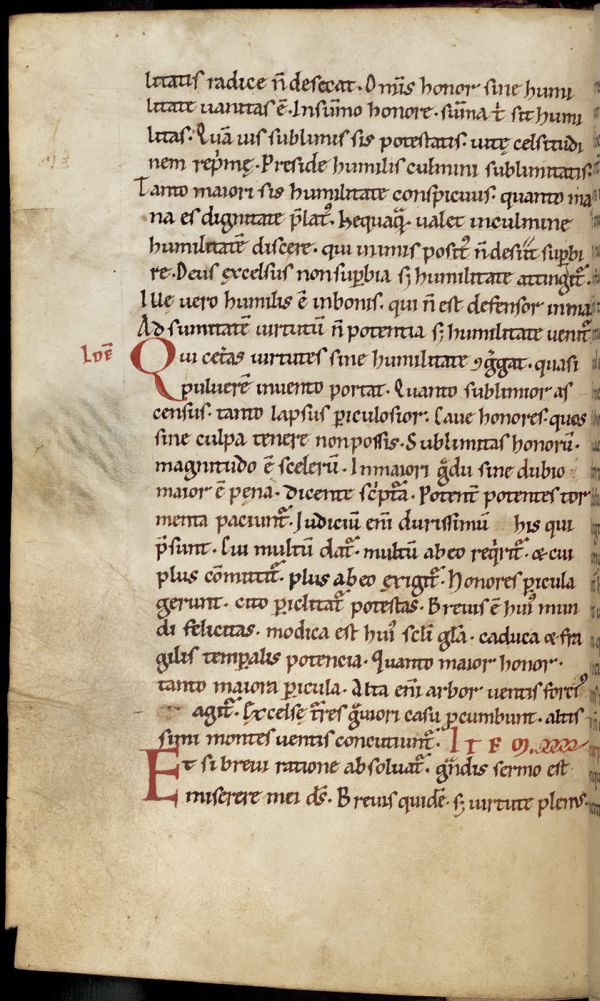 litatis radice n̄ desecat. Om̄is honor sine humi
litate uanitas ē. In sum̄o honore. sum̄a t̄ sit humi
litas. Quā uis sublimis sis potestatis. uitę celsitudi
nem rep̄mę. Preside humilis culmini sublimitatis.
Tanto maiori sis humilitate conspicuus. quanto ma
na es dignitate p̄lat᷒. Nequaq̄ ualet in culmine
humilitatē discere. qui in imis posit᷒ n̄ desiit sup̄bi
re. Deus excelsus non sup̄bia sꝫ humilitate attingit᷑.
Ille uero humilis ē in bonis. qui n̄ est defensor in ma
Ad sum̄itatē uirtutū n̄ potentia sꝫ humilitate uenit᷑
Idē Qui cet̄as uirtutes sine humilitate ꝯḡgat. quasi
puluerē in uento portat. Quanto sublimior as
census. tanto lapsus ꝑiculosior. Caue honores. quos
sine culpa tenere non possis. Sublimitas honorū.
magnitudo ē scelerū. In maiori ḡdu sine dubio
maior ē pęna. dicente sc̄pt̄a. Potent̄ potentes tor
menta paciunt᷑. Iudiciū eni durissimū his qui
p̄sunt. Cui multū dat᷑. multū ab eo req̄rit᷑. & cui
plus cōmittit᷑. plus ab eo exigit᷑. Honores ꝑicula
gerunt. cito ꝑiclitat᷑ potestas. Breuis ē hui᷒ mun
di felicitas. modica est hui᷒ scl̄i gl̄a. caduca & fra
gilis temꝑalis potencia. Quanto maior honor.
tanto maiora ꝑicula. Alta eni arbor uentis forti᷒
agit᷑. Excelsę t̄res ḡuiori casu ꝓcumbunt. altis
simi montes uentis concutiunt᷑. ITEM.
Et si breui ratione absoluat᷑. ḡndis sermo est
miserere mei ds̄. Breuis quidē. sꝫ uirtute plenus.